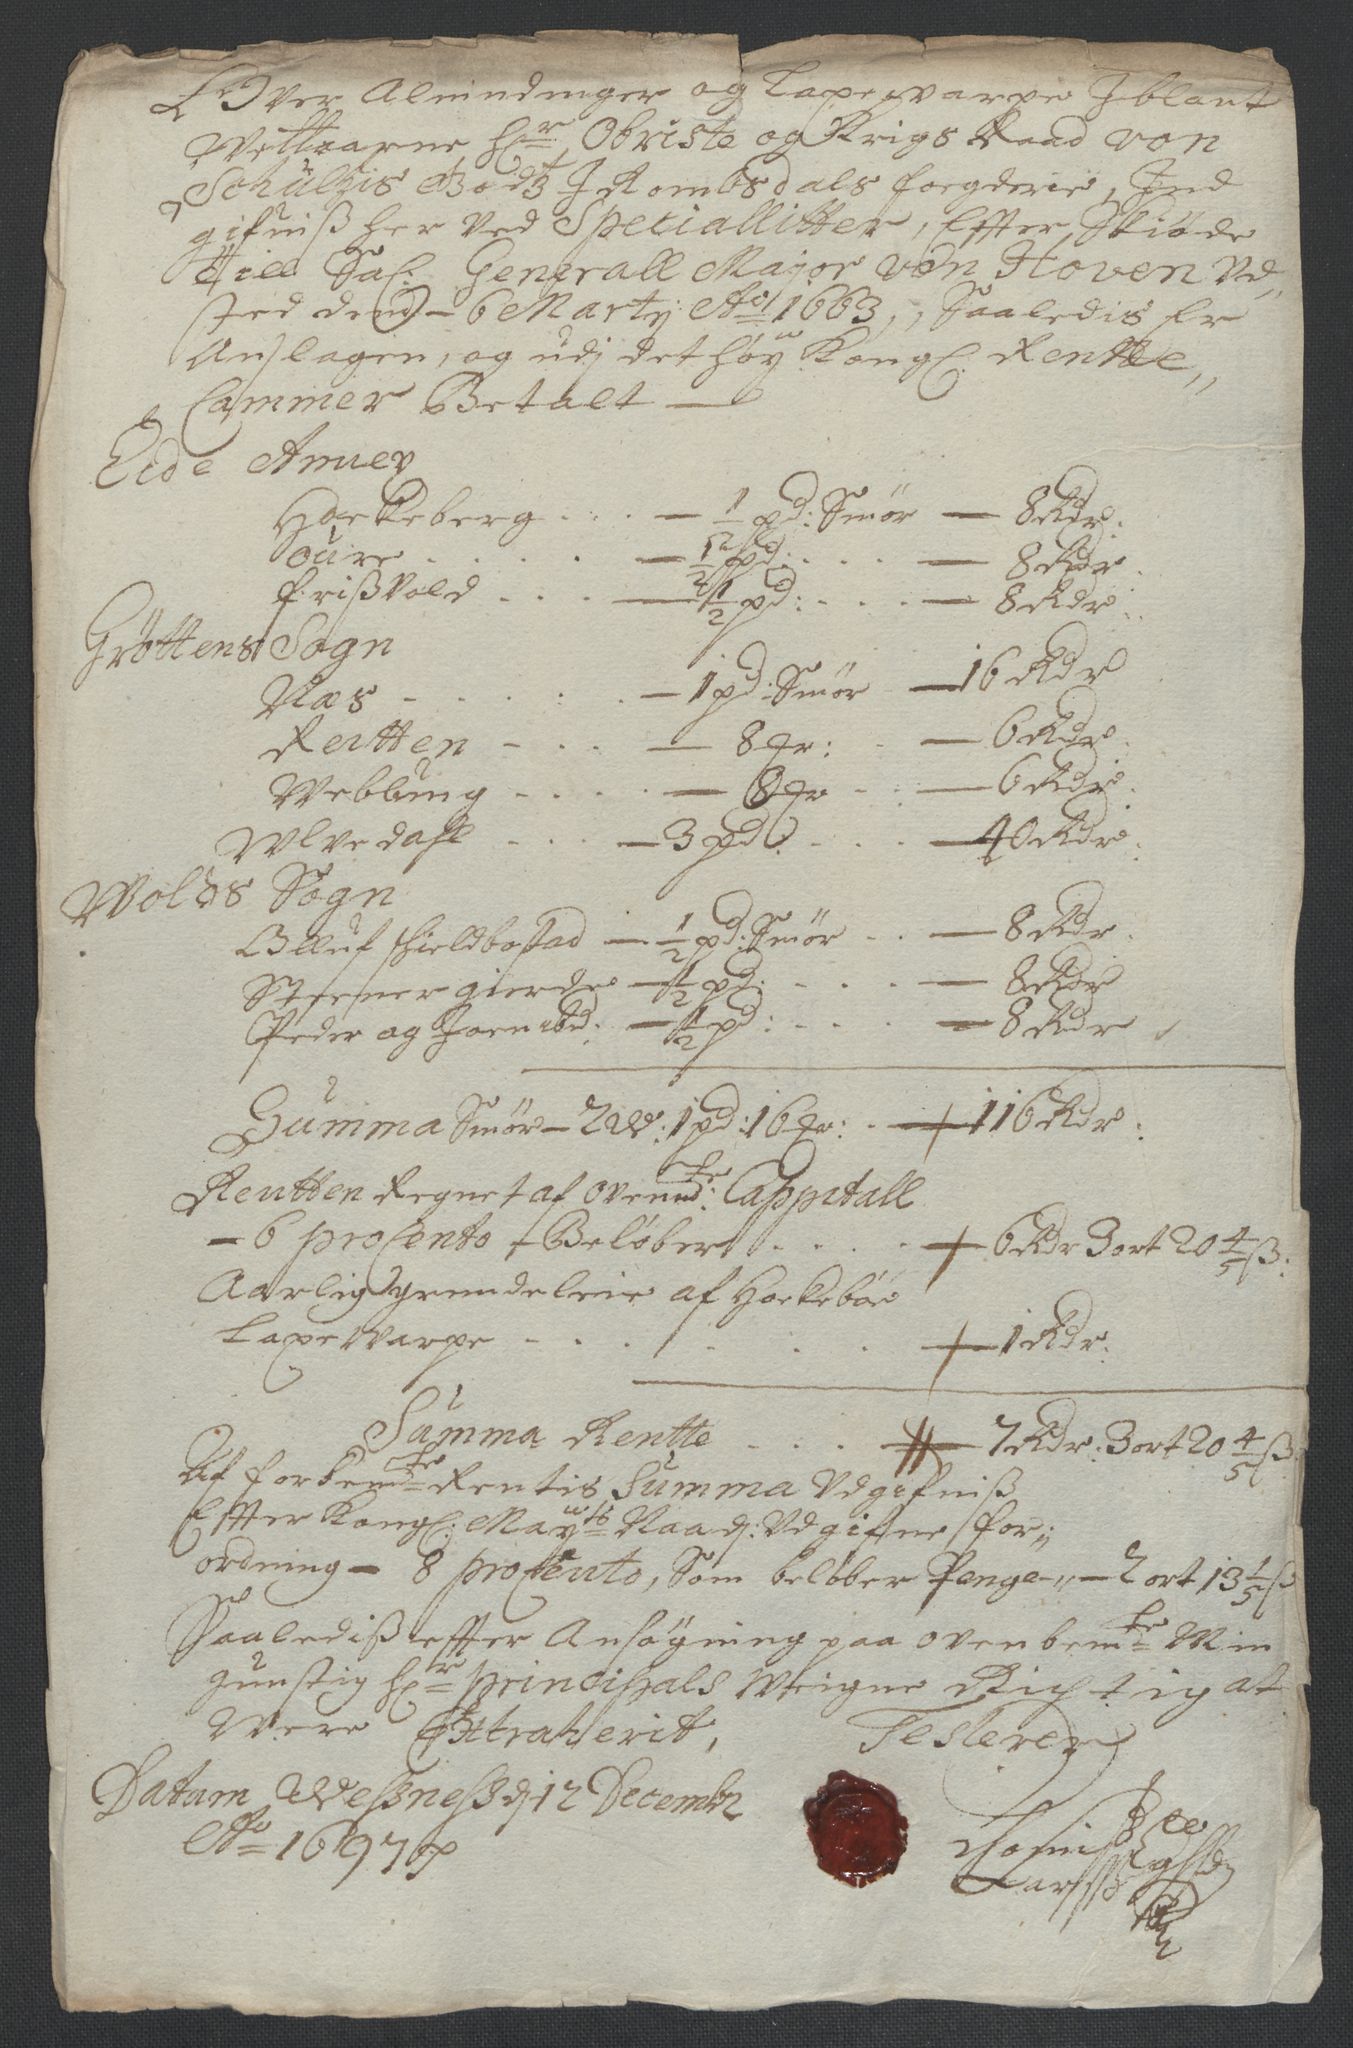 Over Almindinger og Laxe warpe Iblant
Hr Obriste og Krigs Raad von
Schultzis Godtz I Rombsdals fogderie, Ind
gifniß her ved Speciallitter, Effter Skiøde
till Sal: Generall Major von Hoven Vd,,
sted dend - 6 Marty Ao 1663,, Saaledis Er
Anslagen, og udj det høy Kongl: Rentte,,
Cammer Betalt —
Eide Annex
Hoekeberg . . . — 1/2 pd: Smør — 8 Rdr.
oure . . . . — 1/2 pd: . . . — 8 Rdr.
frißvold . . . — 1/2 pd: . . . — 8 Rdr:
Grøttens Sogn
Næs - . . . . — 1 pd: Smør — 16 Rdr
Reitten - . . . — 8 mr: . — 6 Rdr.
Weblung - . . . — 8 mr - . — 6 Rdr.
Wlvedahl . . . — 3 pd: . . . — 40 Rdr.
Wolds Sogn
Olluf schieldbostad — 1/2 pd: Smør . . — 8 Rdr.
Steener gierde — 1/2 pd: . . . — 8 Rdr
Peder og Joen ibd: — 1/2 pd: . . . — 8 Rdr
Summa Smør — 2 W: 1 pd: 16 mr: . — 116 Rdr:
Rentten Regnet af ovenmelte: Cappitall
- 6 pro Cento - Beløber . . . . — 6 Rdr 3 ort 20 4/5 ß:
Aarlig grundeleie af Hoekebøe
Laxe warpe - . . . . . — 1 Rdr:
Summa Rentte . . . — 7 Rdr: 3 ort 20 4/5 ß
Af forbemte Rentis Summa Vdgifniß
Effter Kongl: Mayts Naads: Vdgifne for,,
ordning — 8 pro Cento, Som beløber Penge ,, — 2 ort 13 1/5 ß
Saalediß effter Ansøgning paa ovenbemte Min
gunstig Hr principals Weigne Rigtig at
Were Extraherit, Testerer
Datum Weßneß d: 12 Decembr
Ao 1697